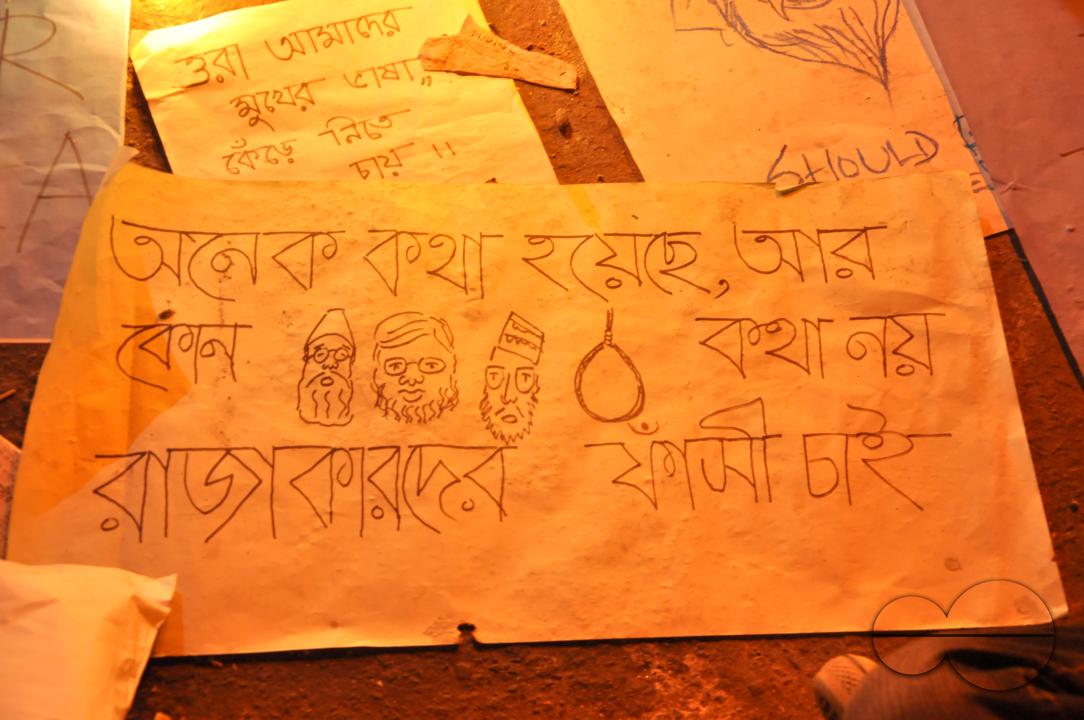 ওরা আমাদের
মুখের ভাষা,,
কেঁড়ে নিতে
চায় !!
SHOULD
R
A
অনেক কথা হয়েছে, আর
কোন কথা নয়
রাজাকারদের ফাঁসী চাই